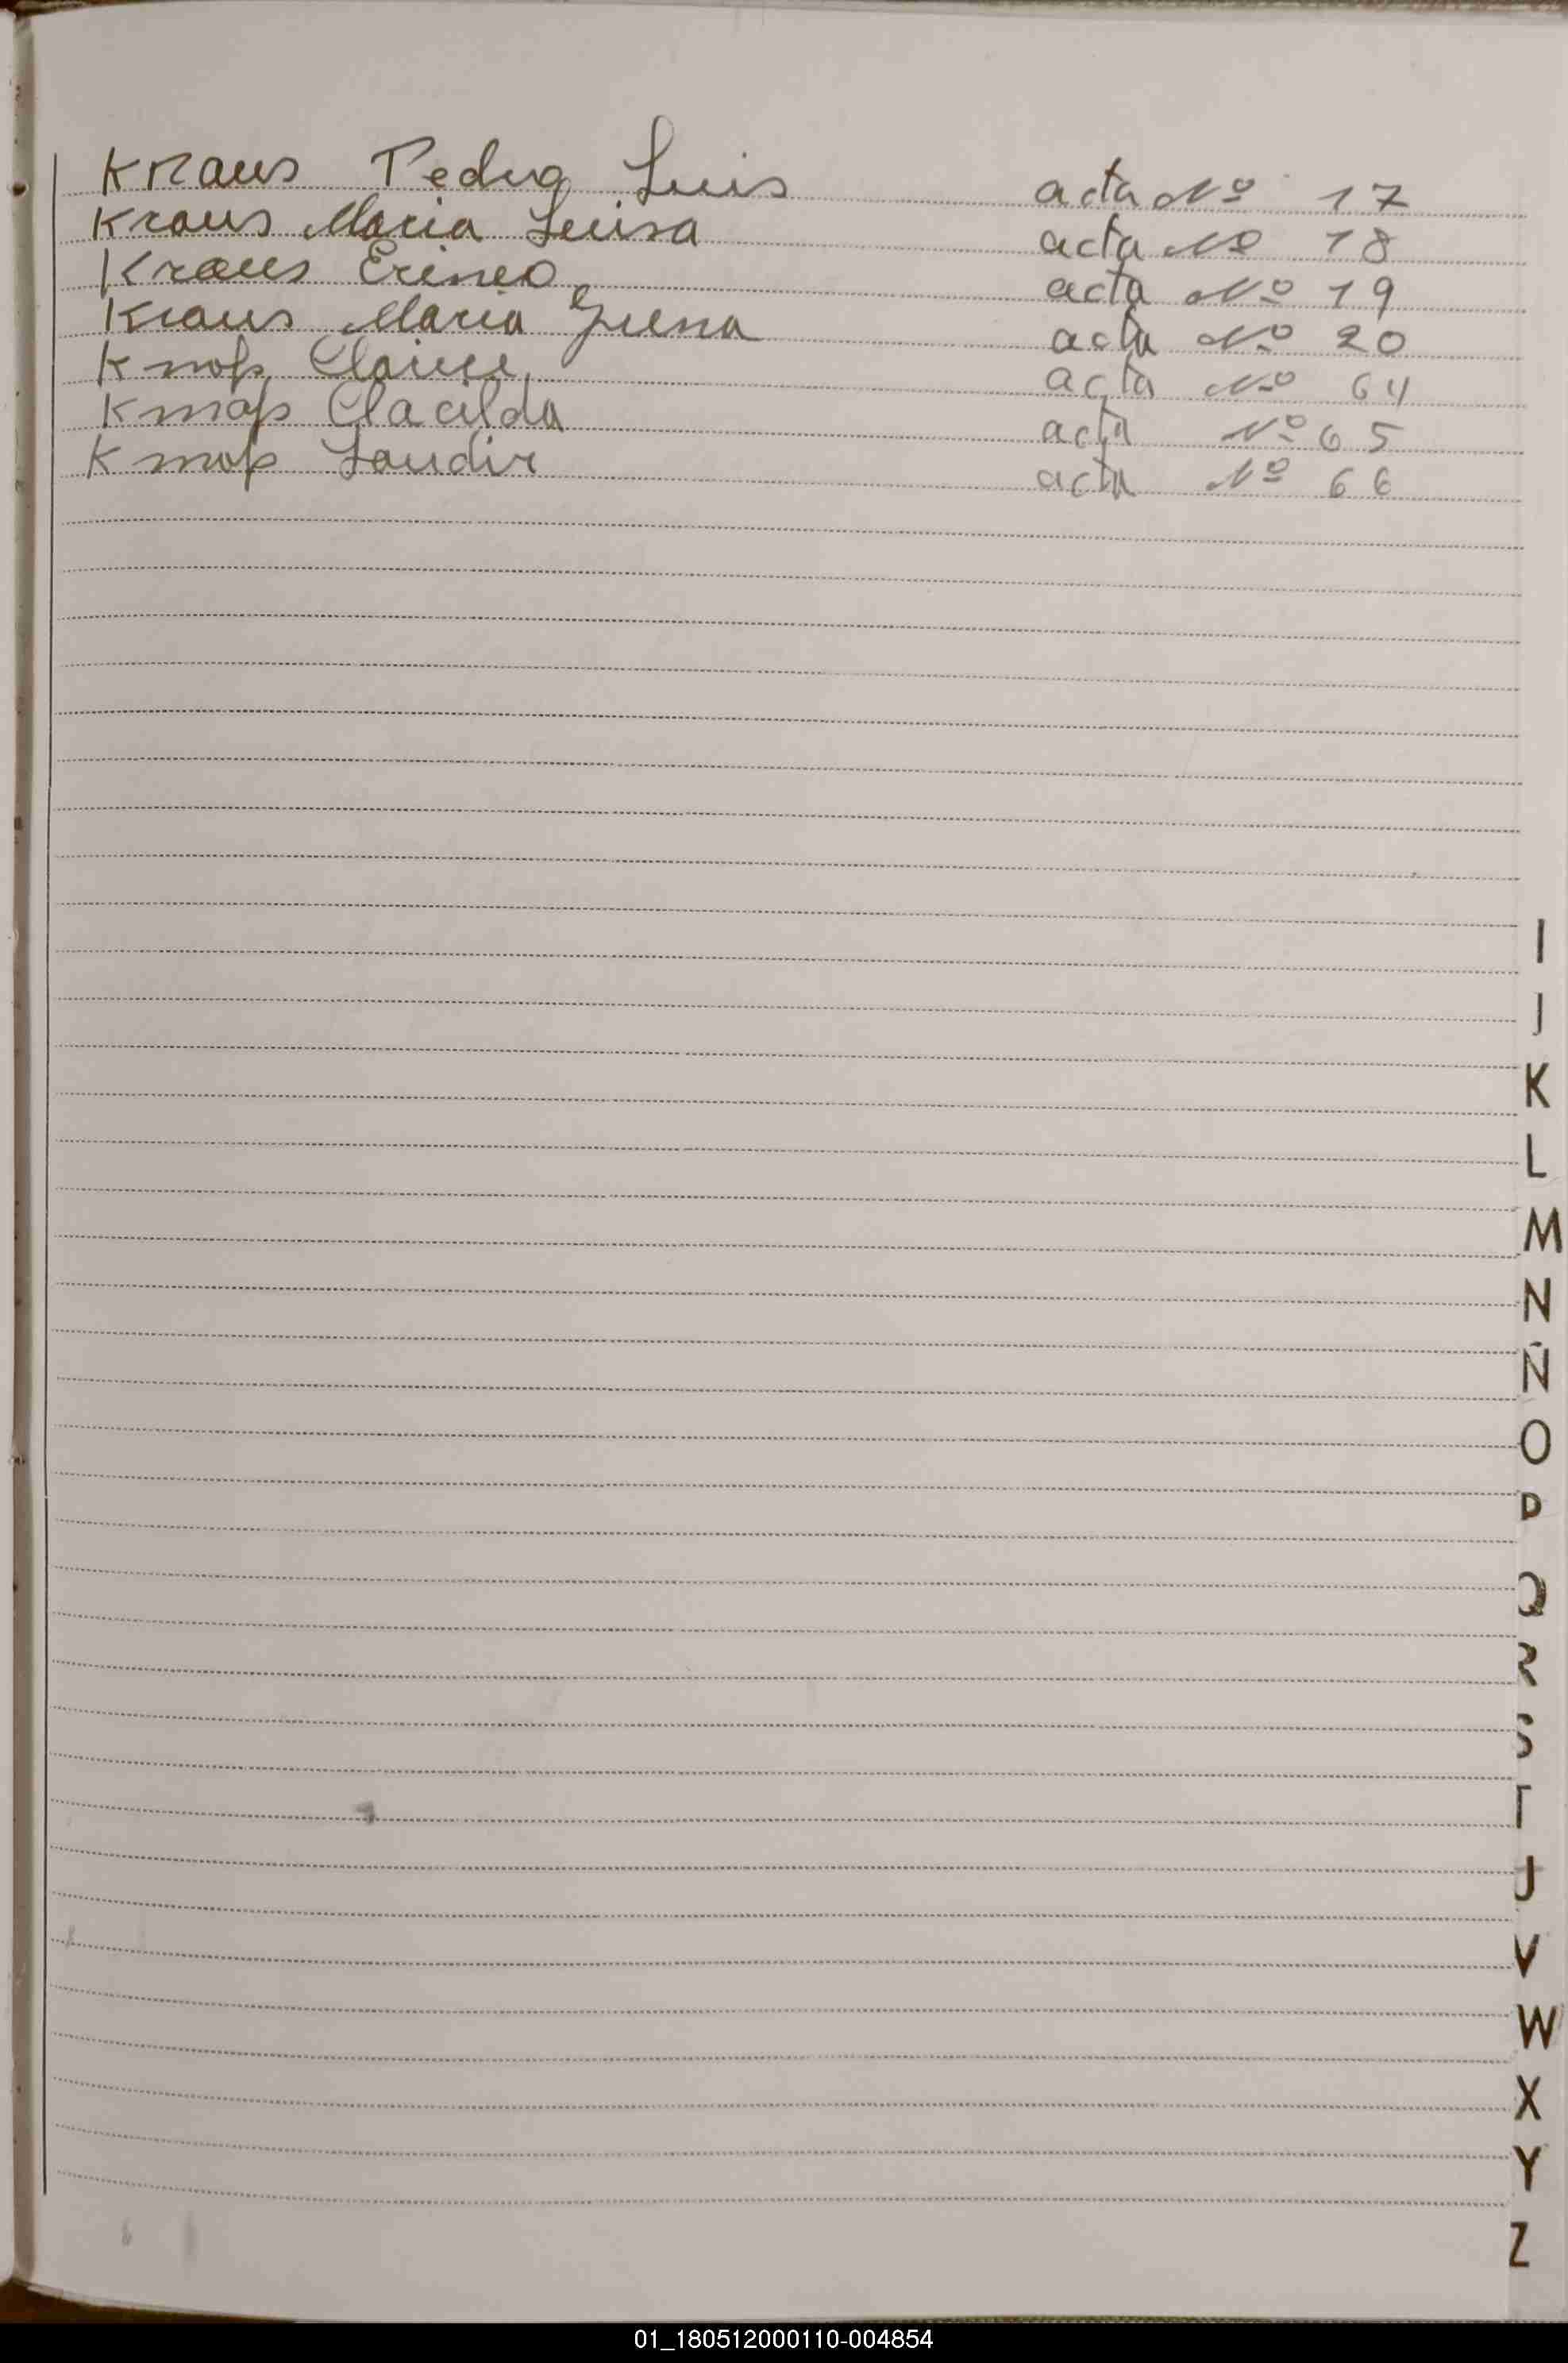 Kraus Pedro Luis acta Nº 17
Kraus Maria Luisa acta Nº 18
Kraus Erineo acta Nº 19
Kraus Maria acta Nº 20
Knop Clarice acta Nº 64
Knop Clacilda acta Nº 65
Knop Laudir acta Nº 66
I
J
K
L
M
N
Ñ
O
P
Q
R
S
T
U
V
W
X
Y
Z
01_180512000110-004854